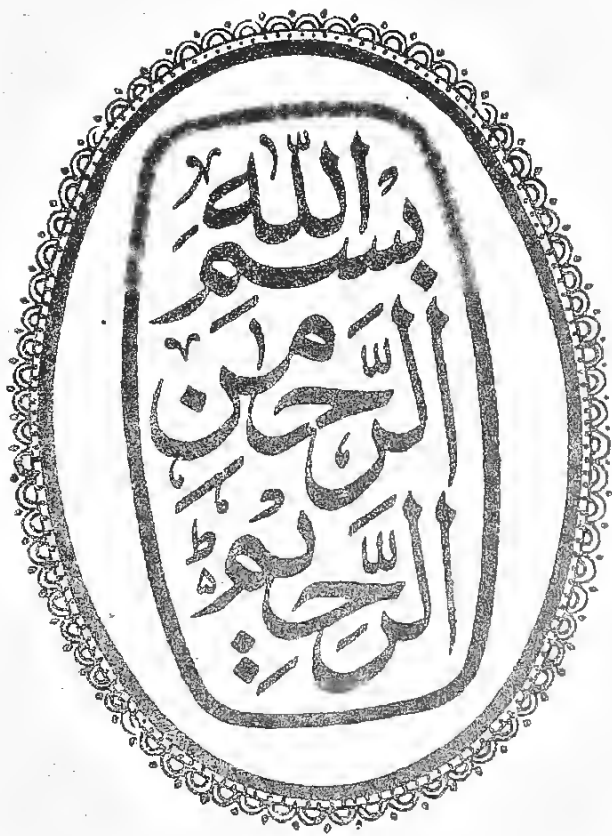 بِسْمِ اللّٰهِ
الرَّحْمٰنِ
الرَّحِيْمِ